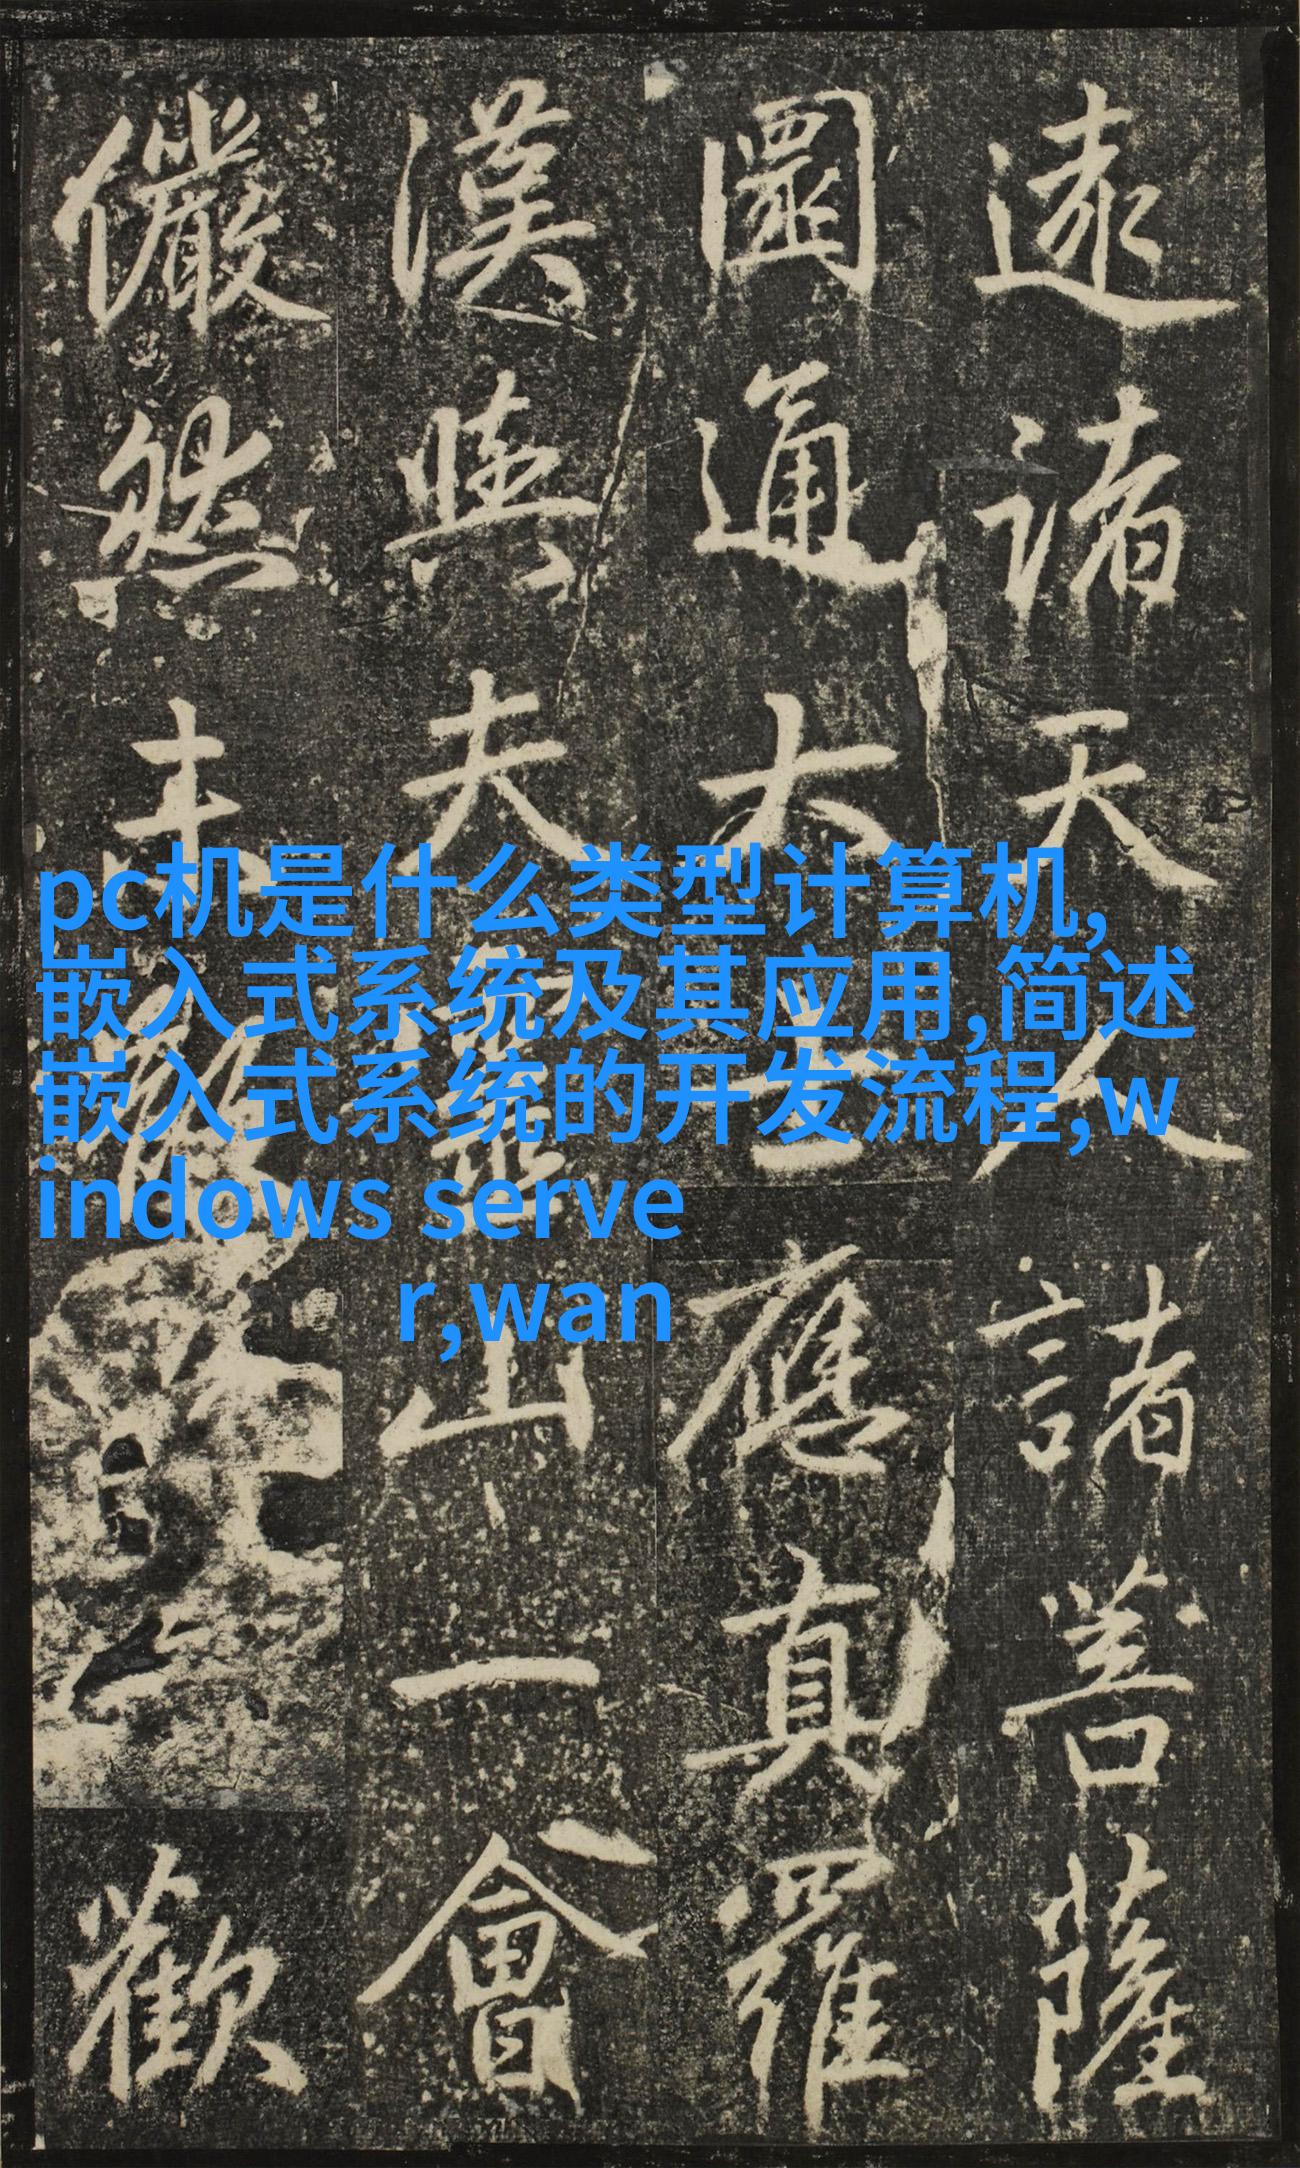 pc机是什么类型计算机,
嵌入式系统及其应用,简述
嵌入式系统的开发流程,w
indows serve
r,wan
遠諸天人諸菩薩
圓通大士應真羅
漢與夫靈山一會
儼然未散歡